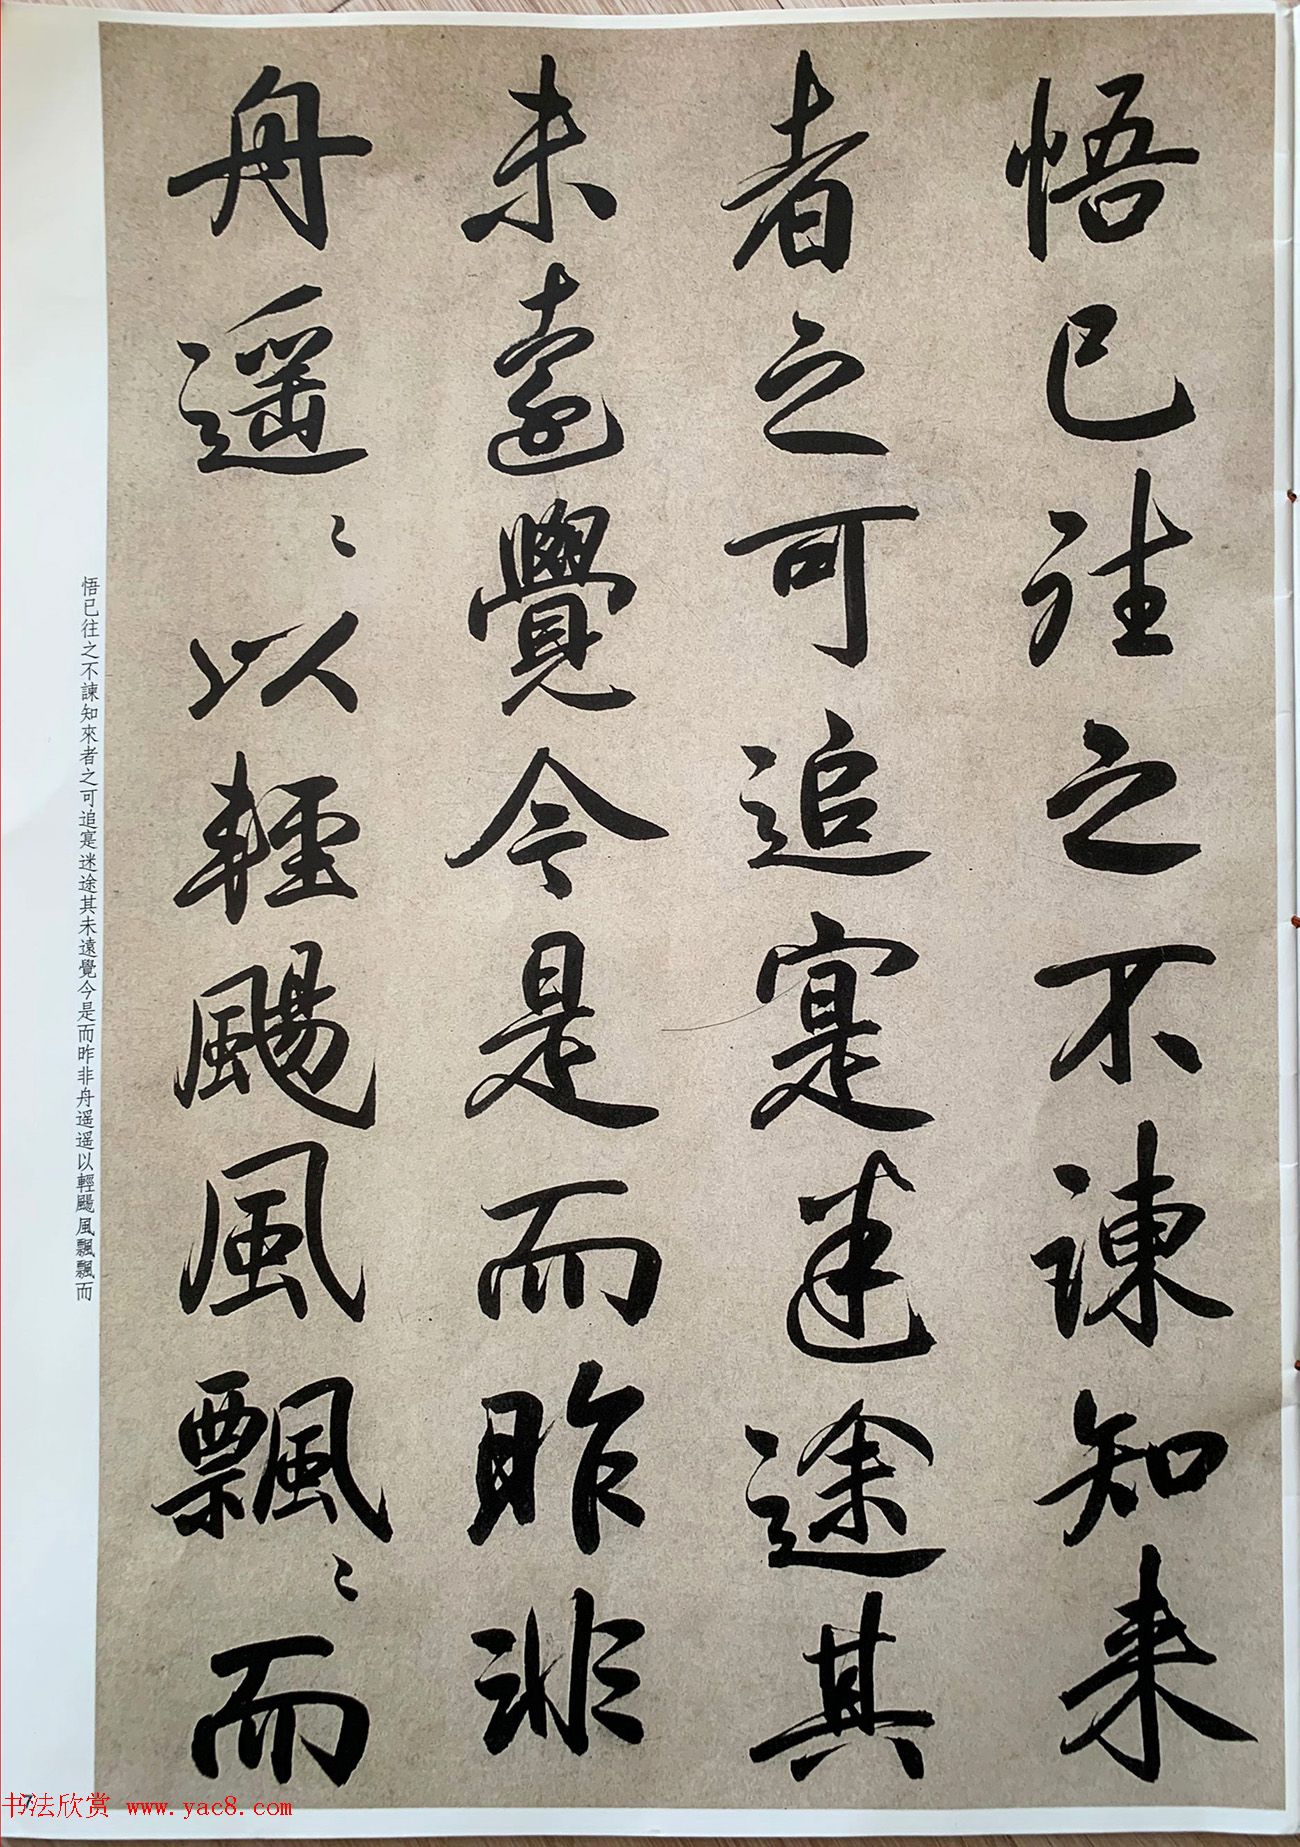 悟已往之不諫知来
者之可追寔迷途其
未遠覺今是而昨非
舟遥〻以輕颺風飄〻而
悟已往之不諫知來者之可追寔迷途其未遠覺今是而昨非舟遥遥以輕颺風飄飄而
7
书法欣赏 www.yac8.com